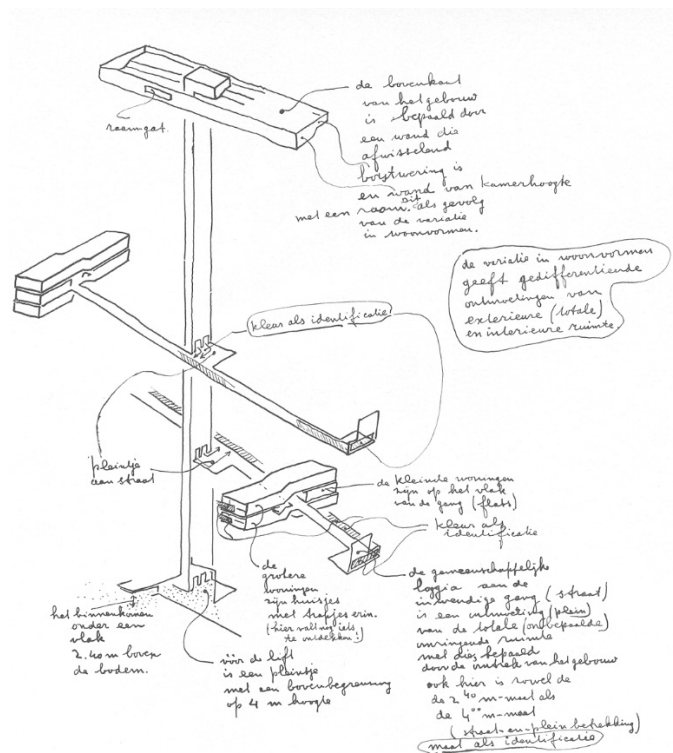 de bovenkant
van het gebouw
is bepaald door
een wand die
afwisselend
borstwering is
en wand van kamerhoogte
met een raam. dit als gevolg
van de variatie
in woonvormen.
raamgat.
de variatie in woonvormen
geeft gedifferentieerde
ontmoetingen van
exterieure (totale)
en interieure ruimte.
kleur als identificatie
pleintje
aan straat
de kleinste woningen
zijn op het vlak
van de gang (flats)
kleur als
identificatie
de
grotere
woningen
zijn huisjes
met trapjes erin.
(hier valt nog iets
te ontdekken!)
de gemeenschappelijke
loggia aan de
inwendige gang (straat)
is een ontmoeting (plein)
van de totale (onbepaalde)
omringende ruimte
met die bepaald
door de omtrek van het gebouw
ook hier is zowel de
de 2⁴⁰ m-maat als
de 4⁰⁰ m-maat
(straat-en-plein betrekking)
maat als identificatie
het binnenkomen
onder een
vlak
2.40 m boven
de bodem.
vóór de lift
is een pleintje
met een bovenbegrenzing
op 4 m hoogte